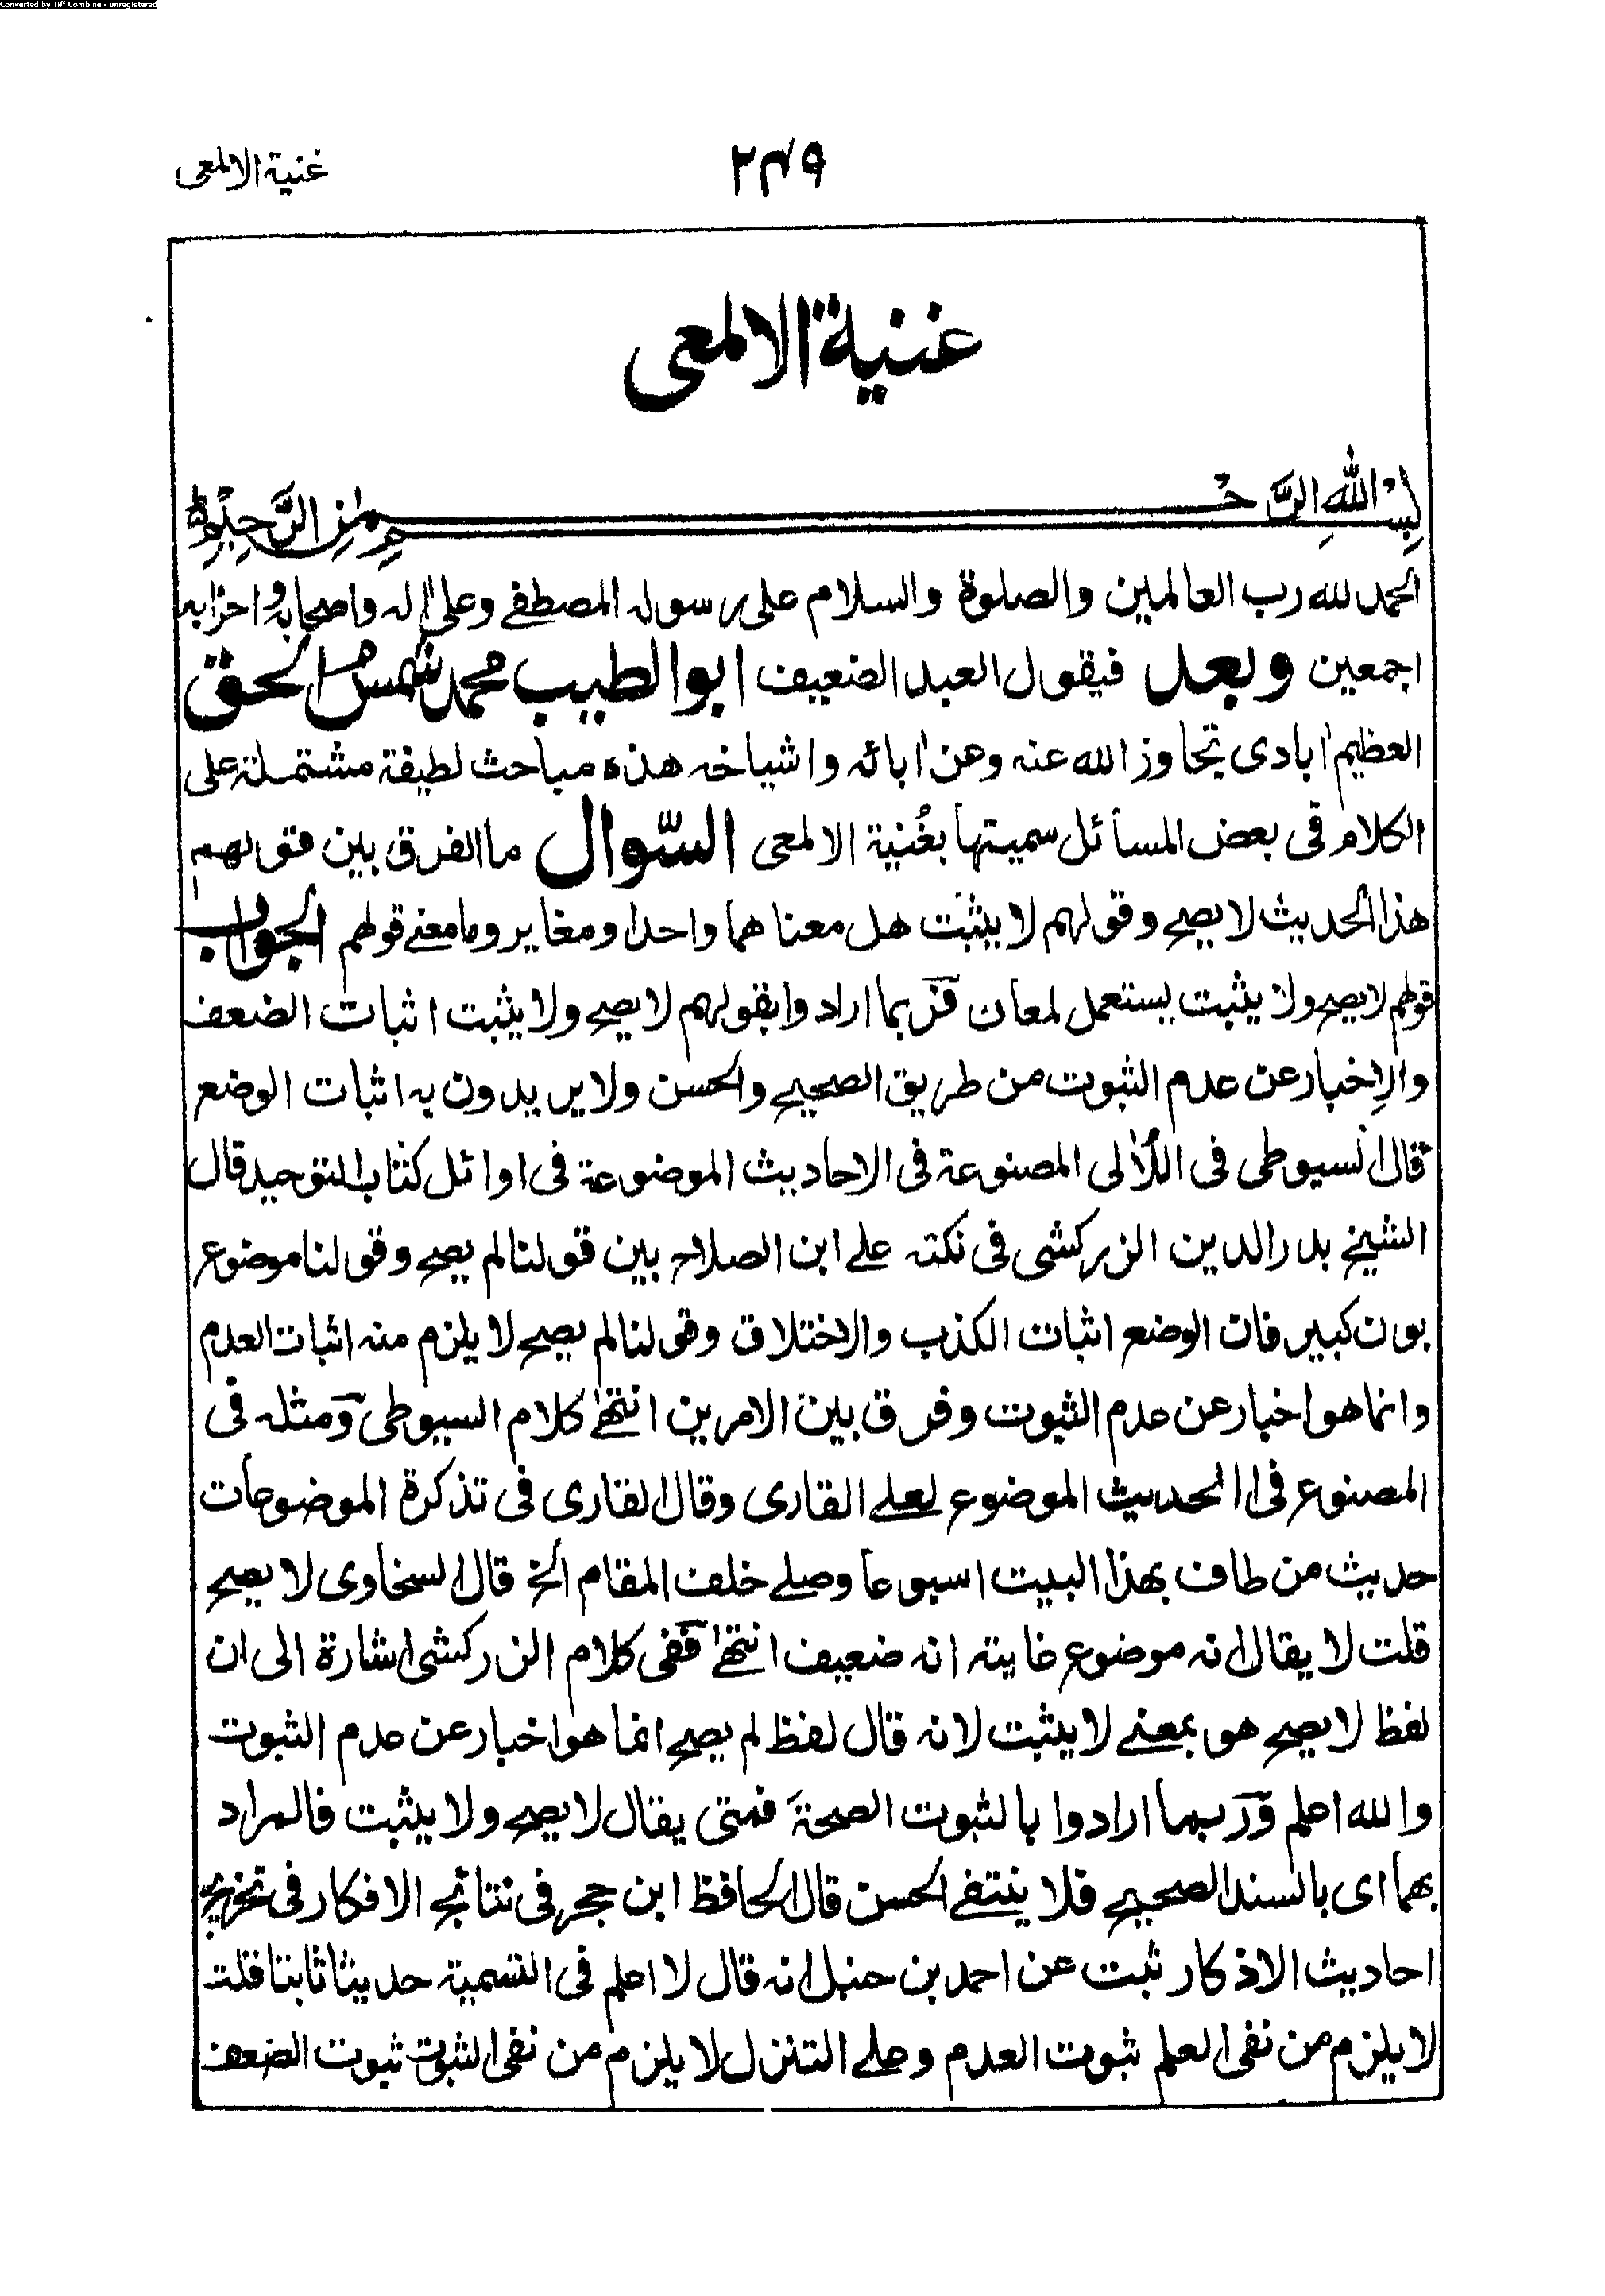 Converted by Tiff Combine - unregistered
غنية الالمعى
٢٣٩
غنية الالمعى
بِسْمِ اللّٰهِ الرَّحْمٰنِ الرَّحِيْمِ
الحمد لله رب العالمين والصلوة والسلام على رسوله المصطفے وعلى اٰله واصحابه واحزابه
اجمعين وبعد فيقول العبد الضعيف ابو الطيب محمد شمس الحق
العظيم اٰبادى تجاوز الله عنه وعن اٰبائه واشياخه هذه مباحث لطيفة مشتملة على
الكلام فى بعض المسائل سميتها بغُنية الالمعى السّوال ما الفرق بين قولهم
هذا الحديث لا يصح وقولهم لا يثبت هل معناهما واحد او مغاير وما معنے قولهم الجواب
قولهم لا يصح ولا يثبت يستعمل لمعان فربما ارادوا بقولهم لا يصح ولا يثبت اثبات الضعف
والاِخبار عن عدم الثبوت من طريق الصحيح والحسن ولا يريدون به اثبات الوضع
قال السيوطى فى اللاٰلى المصنوعة فى الاحاديث الموضوعة فى اوائل كتاب التوحيد قال
الشيخ بدر الدين الزركشى فى نكته علے ابن الصلاح بين قولنا لم يصح وقولنا موضوع
بون كبير فان الوضع اثبات الكذب والاختلاق وقولنا لم يصح لا يلزم منه اثبات العدم
وانما هو اخبار عن عدم الثبوت وفرق بين الامرين انتهےٰ كلام السيوطى ومثله فى
المصنوع فى الحديث الموضوع لعلے القارى وقال القارى فى تذكرة الموضوعات
حديث من طاف بهذا البيت اسبوعا وصلے خلف المقام الخ قال السخاوى لا يصح
قلت لا يقال انه موضوع غايته انه ضعيف انتهےٰ ففى كلام الزركشى اشارة الى ان
لفظ لا يصح هو بمعنے لا يثبت لانه قال لفظ لم يصح انما هو اخبار عن عدم الثبوت
والله اعلم وربما ارادوا بالثبوت الصحة فمتى يقال لا يصح ولا يثبت فالمراد
بهما اى بالسند الصحيح فلا ينتفے الحسن قال الحافظ ابن حجر فى نتائج الافكار فى تخريج
احاديث الاذكار ثبت عن احمد بن حنبل انه قال لا اعلم فى التسمية حديثا ثابتا قلت
لا يلزم من نفى العلم ثبوت العدم وعلے التنزل لا يلزم من نفى الثبوت ثبوت الضعف